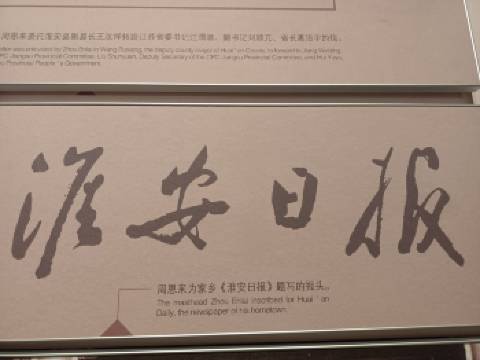 周恩来委托淮安县副县长王汝祥转给江苏省委书记江渭清、副书记刘顺元、省长惠浴宇的信。
was entrusted by Zhou Enlai to Wang Ruxiang, the deputy county mayor of Huai'an County, to forward to Jiang Weiqing,
CPC Jiangsu Provincial Committee, Liu Shunyuan, Deputy Secretary of the CPC Jiangsu Provincial Committee, and Hui Yuyu,
Provincial People's Government.
淮安日报
周恩来为家乡《淮安日报》题写的报头。
The masthead Zhou Enlai inscribed for Huai'an
Daily, the newspaper of his hometown.